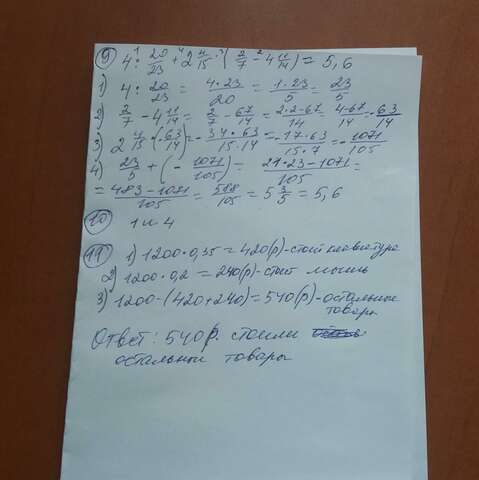 9 4 : 20/23 + 2 4/15 · (2/7 - 4 11/14) = 5,6
1) 4 : 20/23 = 4·23/20 = 1·23/5 = 23/5
2) 2/7 - 4 11/14 = 2/7 - 67/14 = 2·2-67/14 = 4-67/14 = -63/14
3) 2 4/15 · (-63/14) = -34·63/15·14 = -17·63/15·7 = -1071/105
4) 23/5 + (-1071/105) = 21·23-1071/105 =
= 483-1071/105 = 588/105 = 5 3/5 = 5,6
10 1 и 4
11 1) 1200·0,35 = 420(р)-стоит клавиатура
2) 1200·0,2 = 240(р)-стоит мышь
3) 1200-(420+240) = 540(р)-остальные
товары
Ответ: 540р. стоили
остальные товары